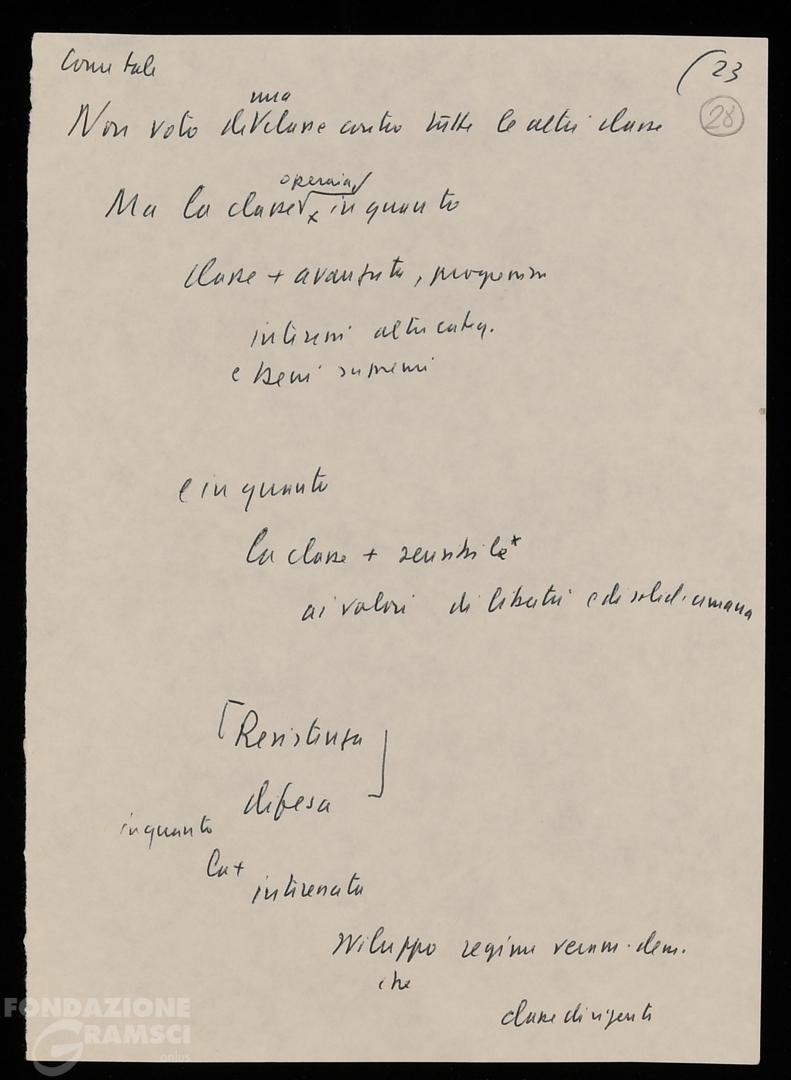 Come tale
(23
28
una
Non voto di V classe contro tutte le altre classe
operaia
Ma la classe x in quanto
classe + avanzata, progressiva
interessi altre categ.
e beni supremi
e in quanto
la classe + sensibile *
ai valori di libertà e di solid. umana
[Resistenza
difesa]
in quanto
la +
interessata
sviluppo regime veram. dem.
che
classe dirigente
FONDAZIONE
GRAMSCI
onlus